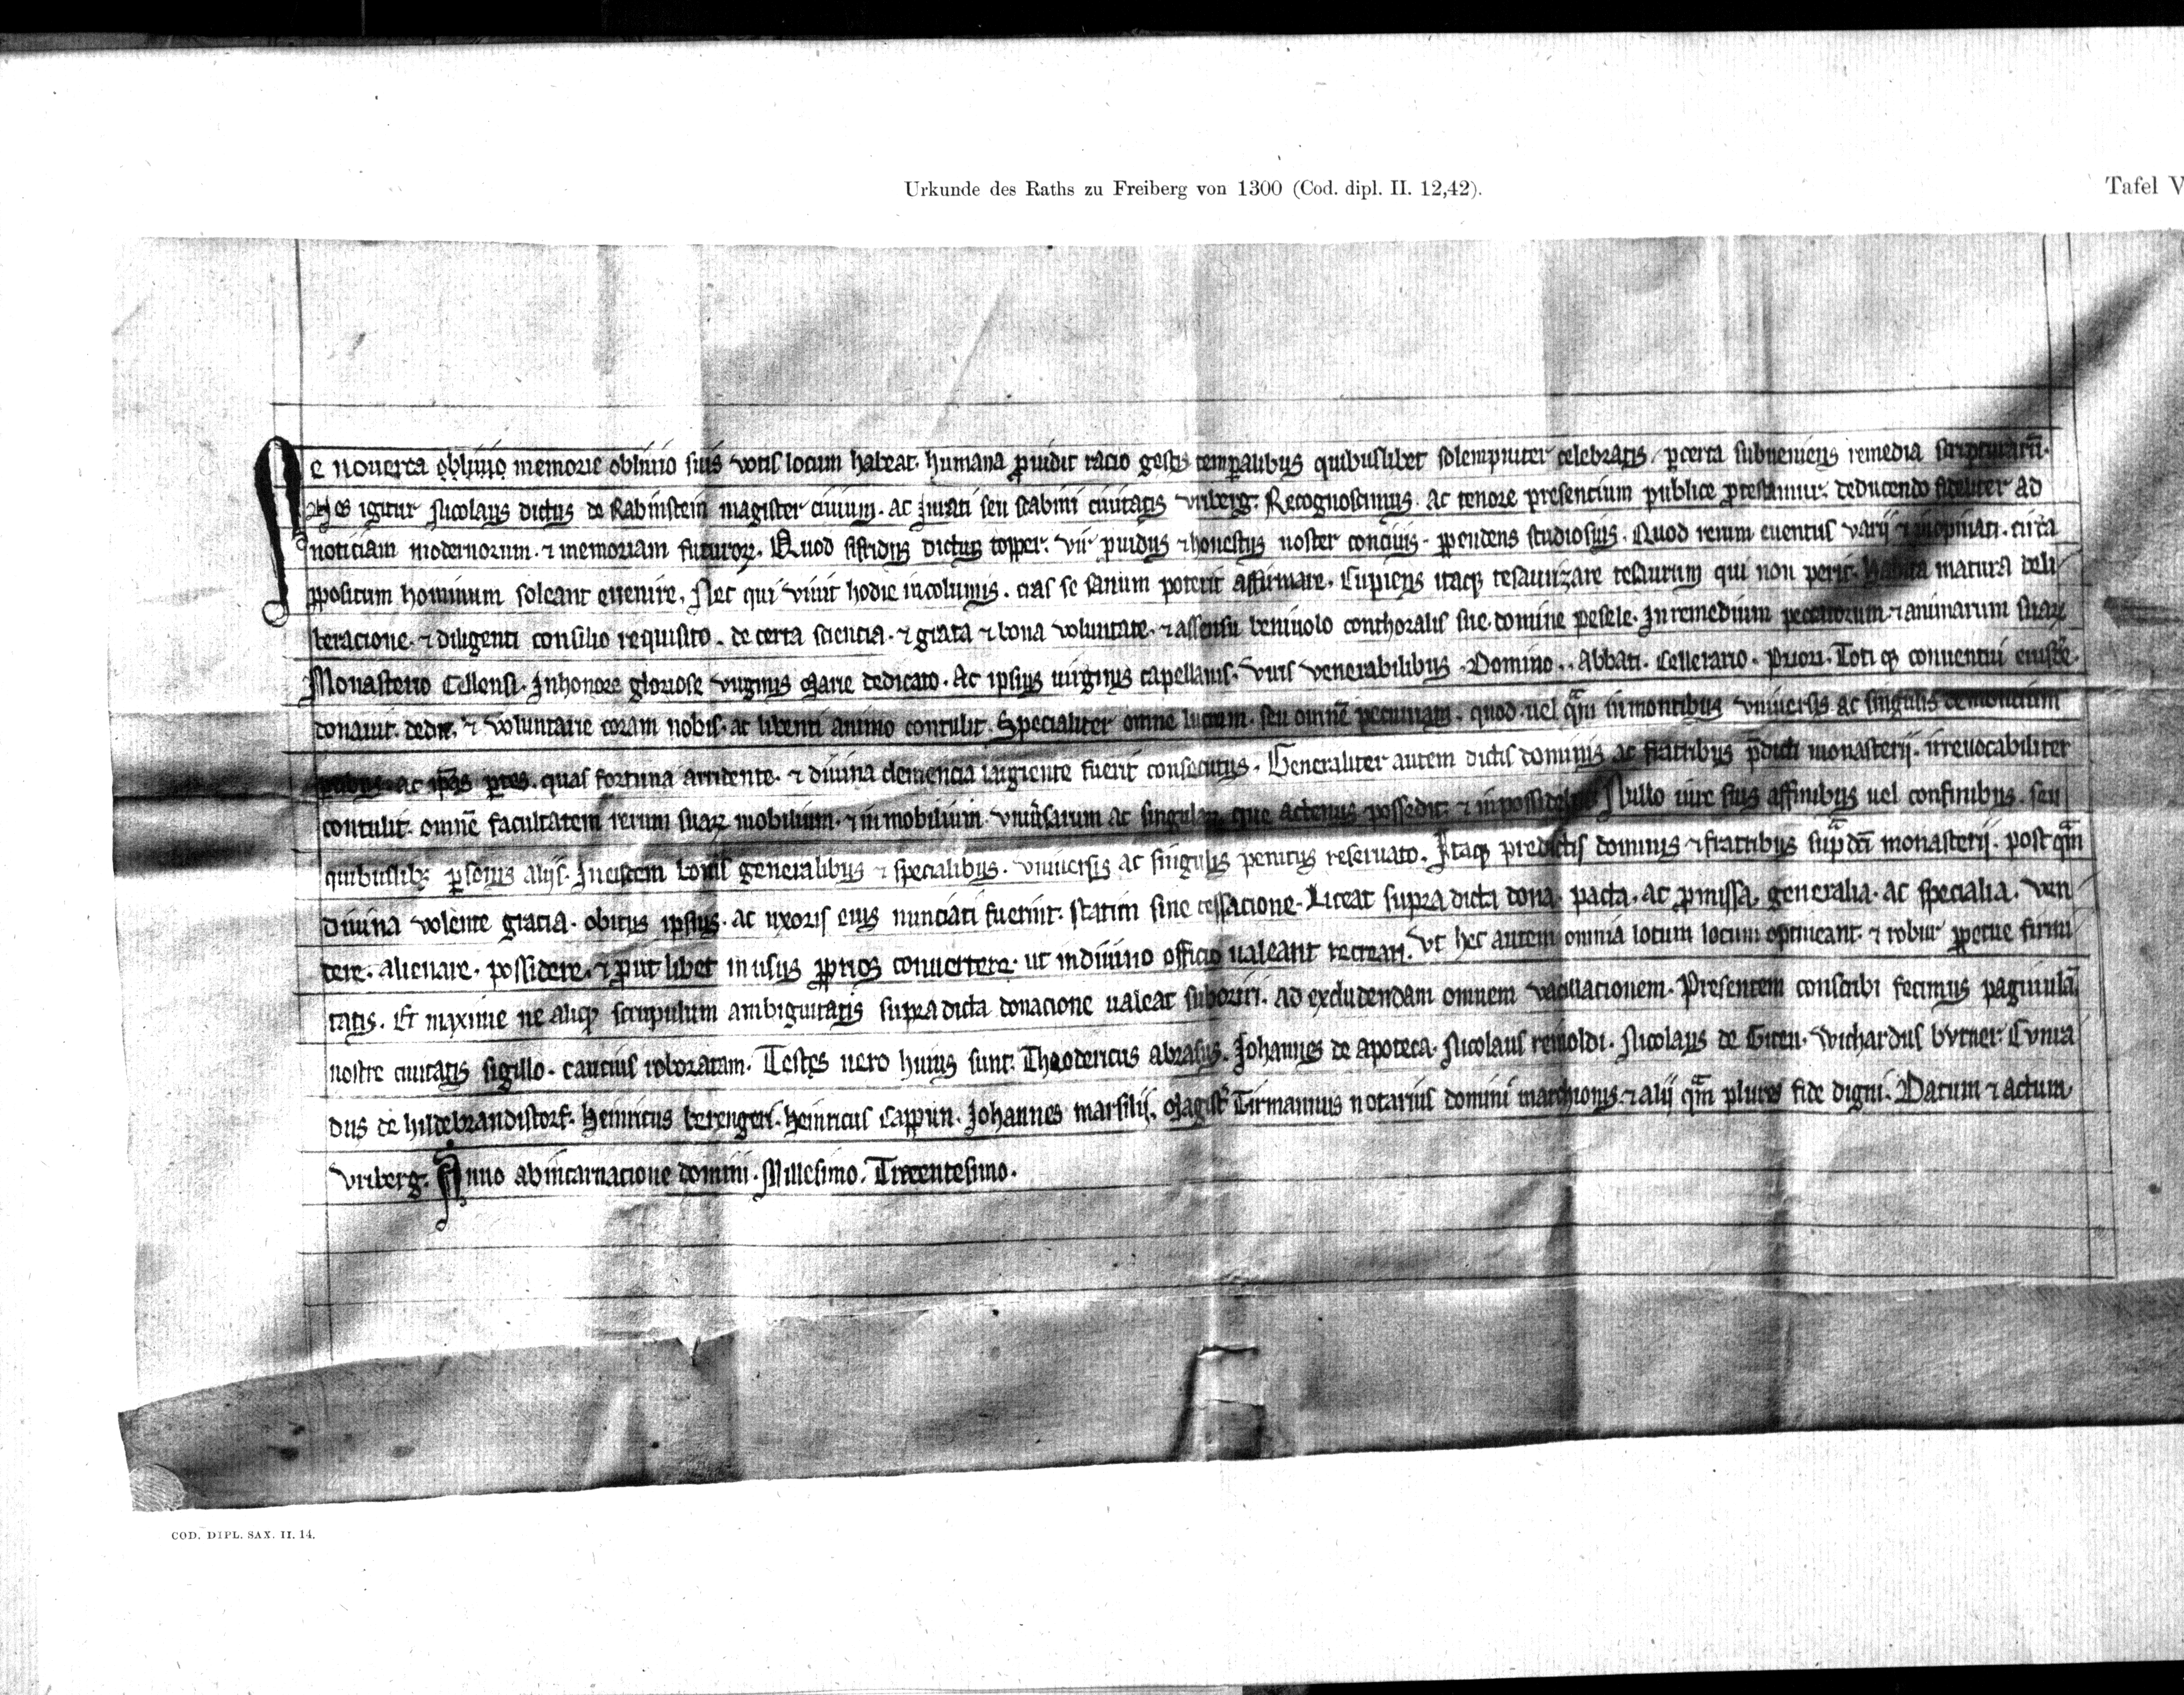 Urkunde des Raths zu Freiberg von 1300 (Cod. dipl. II. 12,42).
Tafel V
Ne nouerca obliuio memorie obliuio suis votis locum habeat. humana ꝓuidit racio gestis temꝑalibus quibuslibet solempniter celebratis. ꝑ certa subueniens remedia scripturaꝝ.
igitur Nicolaus dictus de Rabinstein magister ciuium. ac Jurati seu scabini ciuitatis Vriberg. Recognoscimus. Ac tenore presencium publice ꝓtestamur. deducendo ad
noticiam modernorum. ⁊ memoriam futuroꝝ. Quod sifridus dictus topper. vir ꝓuidus ⁊ honestus noster conciuis. ꝑpendens studiosius. Quod rerum euentus varij ⁊ inopinati. circa
ꝓpositum hominum soleant euenire. Nec qui viuit hodie incolumis. cras se sanum poterit affirmare. Cupiens itaqꝫ tesaurizare tesaurum qui non perit. habita matura deli
beracione. ⁊ diligenti consilio requisito. de certa sciencia. ⁊ grata ⁊ bona voluntate. ⁊ assensu beniuolo conthoralis sue. domine pesele. In remedium peccatorum. ⁊ animarum suaꝝ
Monasterio Cellensi. In honore gloriose virginis Marie dedicato. Ac ipsius uirginis capellanis. viris venerabilibus. Domino.. Abbati. Cellerario. Priori. Toti qꝫ conuentui
donauit. dedit. ⁊ voluntarie coram nobis. ac libenti animo contulit. Specialiter omne lucrum. seu omnē pecuniam. quod uel qᵃm in montibus vniuersis ac singulis
ac ꝑtes. quas fortuna arridente. ⁊ diuina clemencia largiente fuerit consecutus. Generaliter autem dictis dominis ac fratribus p̄dicti monasterij. irreuocabiliter
contulit. omnē facultatem rerum suaꝝ mobilium. ⁊ inmobilium vniuersarum ac singulaꝝ que actenus possedit. ⁊ Nullo iure suis affinibus uel confinibus. seu
quibuslibꝫ ꝑsonis alijs. In eisdem bonis generalibus ⁊ specialibus. vniuersis ac singulis penitus reseruato. Itaqꝫ predictis dominis ⁊ fratribus supᵃ dc̄i monasterij. post qᵃm
diuina volente gracia. obitus ipsius. ac uxoris eius nunciati fuerint. statim sine cessacione. Liceat supra dicta dona. pacta. ac ꝓmissa. generalia. ac specialia. ven
dere. alienare. possidere. ⁊ ꝓut libet in usus ꝓprios conuertere. ut in diuino officio ualeant recreari. Vt hec autem omnia locum locum optineant. ⁊ robur ꝑpetue firmi
tatis. Et maxime ne aliqꝫ scrupulum ambiguitatis supra dicta donacione ualeat suboriri. ad excludendam omnem vacillacionem. Presentem conscribi fecimus paginulā.
nostre ciuitatis sigillo. caucius roboratam. Testes uero huius sunt. Theodericus abrasus. Johannes de apoteca. Nicolaus reinoldi. Nicolaus de Giten. Wichardus bvrner. Cvnra
dus de hildebrandistorf. heinricus berengeri. heinricus sappun. Johannes marsilij. Magistʳ Tirmannus notarius domini marchionis. ⁊ alij qᵃm plures fide digni. Datum ⁊ actum
Vriberg. Anno ab incarnacione domini. Millesimo. Trecentesimo.
COD. DIPL. SAX. II. 14.